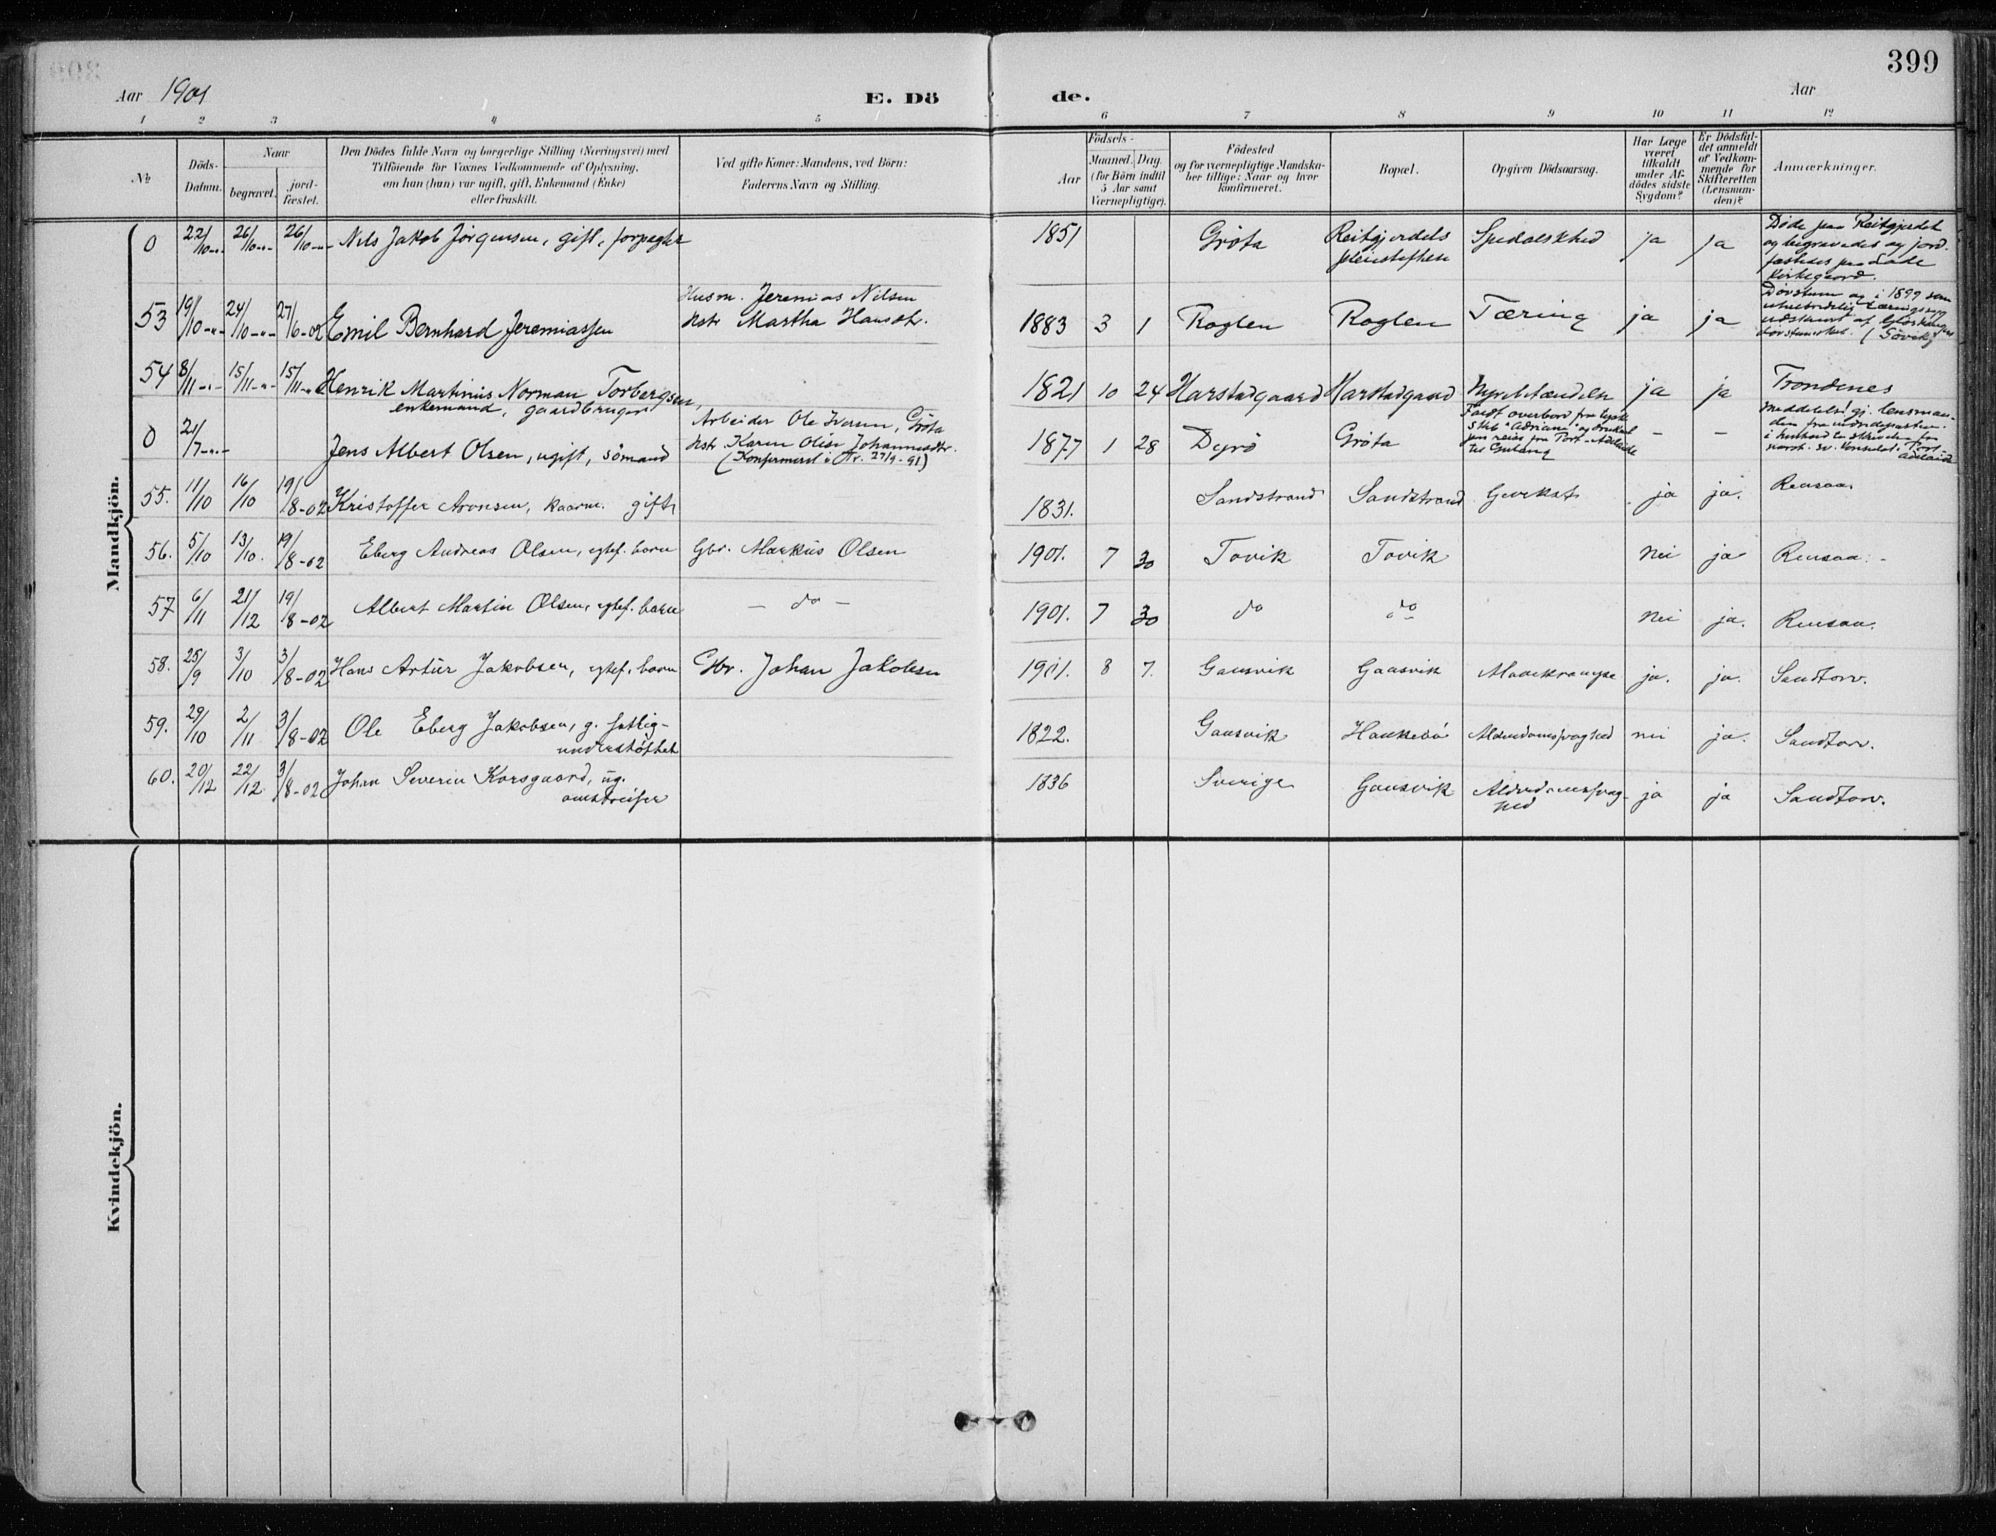 399
Aar 1901
E. Dö
de.
Aar
1 2 3 4 5 6 7 8 9 10 11 12
№
Döds-
Datum.
Naar
begravet.
jord-
fæstet.
Den Dödes fulde Navn og borgerlige Stilling (Næringsvei) med
Tilföiende for Voxnes Vedkommende af Oplysning,
om han (hun) var ugift, gift, Enkemand (Enke)
eller fraskilt.
Ved gifte Koner: Mandens, ved Börn:
Faderens Navn og Stilling.
Födsels-
Aar
Maaned. Dag.
(for Börn indtil
5 Aar samt
Værnepligtige).
Födested
og for værnepligtige Mandska-
ber tillige: Naar og hvor
konfirmeret.
Bopæl.
Opgiven Dödsaarsag.
Har Læge
været
tilkaldt
under Af-
dödes sidste
Sygdom?
Er Dödsfal-
det anmeldt
af Vedkom-
mende for
Skifteretten
(Lensman-
den)?
Anmærkninger.
Mandkjön.
0 22/10 -"- 26/10 -"- 26/10 -"- Nils Jakob Jörgensen, gift, forpagter 1851 Gröta Reitgjerdets Spedalskhed ja ja Döde paa Reitgjerdet
pleiestiftelse og begravedes og jord-
fæstedes paa Lade
Kirkegaard.
53 19/10 -"- 24/10 -"- 27/6-02 Emil Bernhard Jeremiassen Husm. Jeremias Nilsen 1883 3 1 Roglen Roglen Tæring ja ja Dövstum og i 1899 som
Hstr Martha Hansdtr.
54 8/11 -"- 15/11 -"- 15/11 -"- Henrik Martinus Norman Torbergsen, 1821 10 24 Harstadgaard Harstadgaard Nyrebetændelse ja ja Trondenes
enkemand, gaardbruger
0 21/7 -"- Jens Albert Olsen, ugift, sömand Arbeider Ole Iversen, Gröta 1877 1 28 Dyrö Gröta Faldt overbord fra tysk - -
Hstr. Karen Olise Johannesdtr. Skib "Adriane" og druknet
(Konfirmeret i Tr. 27/9-91) paa reise fra Port-Adelaide
55. 11/10 16/10 19/8-02 Kristoffer Aronsen, kaarm. gift 1831. Sandstrand Sandstrand ja ja. Rensaa
56. 5/10 13/10. 19/8-02 Eberg Andreas Olsen, egtef. barn Gbr. Markus Olsen 1901. 7 30 Tovik Tovik nei ja Rensaa. -
57 6/11 21/12 19/8-02 Albert Martin Olsen, egtef. barn - do - 1901. 7 30 do do nei ja. Rensaa.
58. 25/9 3/10 3/8-02 Hans Artür Jakobsen, egtef. barn Gbr. Johan Jakobsen 1901. 8 7. Gausvik Gausvik Mavekrampe ja. ja. Sandtorv.
59. 29/10 2/11 3/8-02 Ole Eberg Jakobsen, g. fattig- 1822. Gausvik Haukebö Alderdomssvaghed nei ja. Sandtorv.
understöttet
60. 20/12 22/12. 3/8-02 Johan Severin Korsgaard, ug. 1836 Sverige Gausvik Alderdomssvag- ja ja Sandtorv.
omstreifer hed
Kvindekjön.